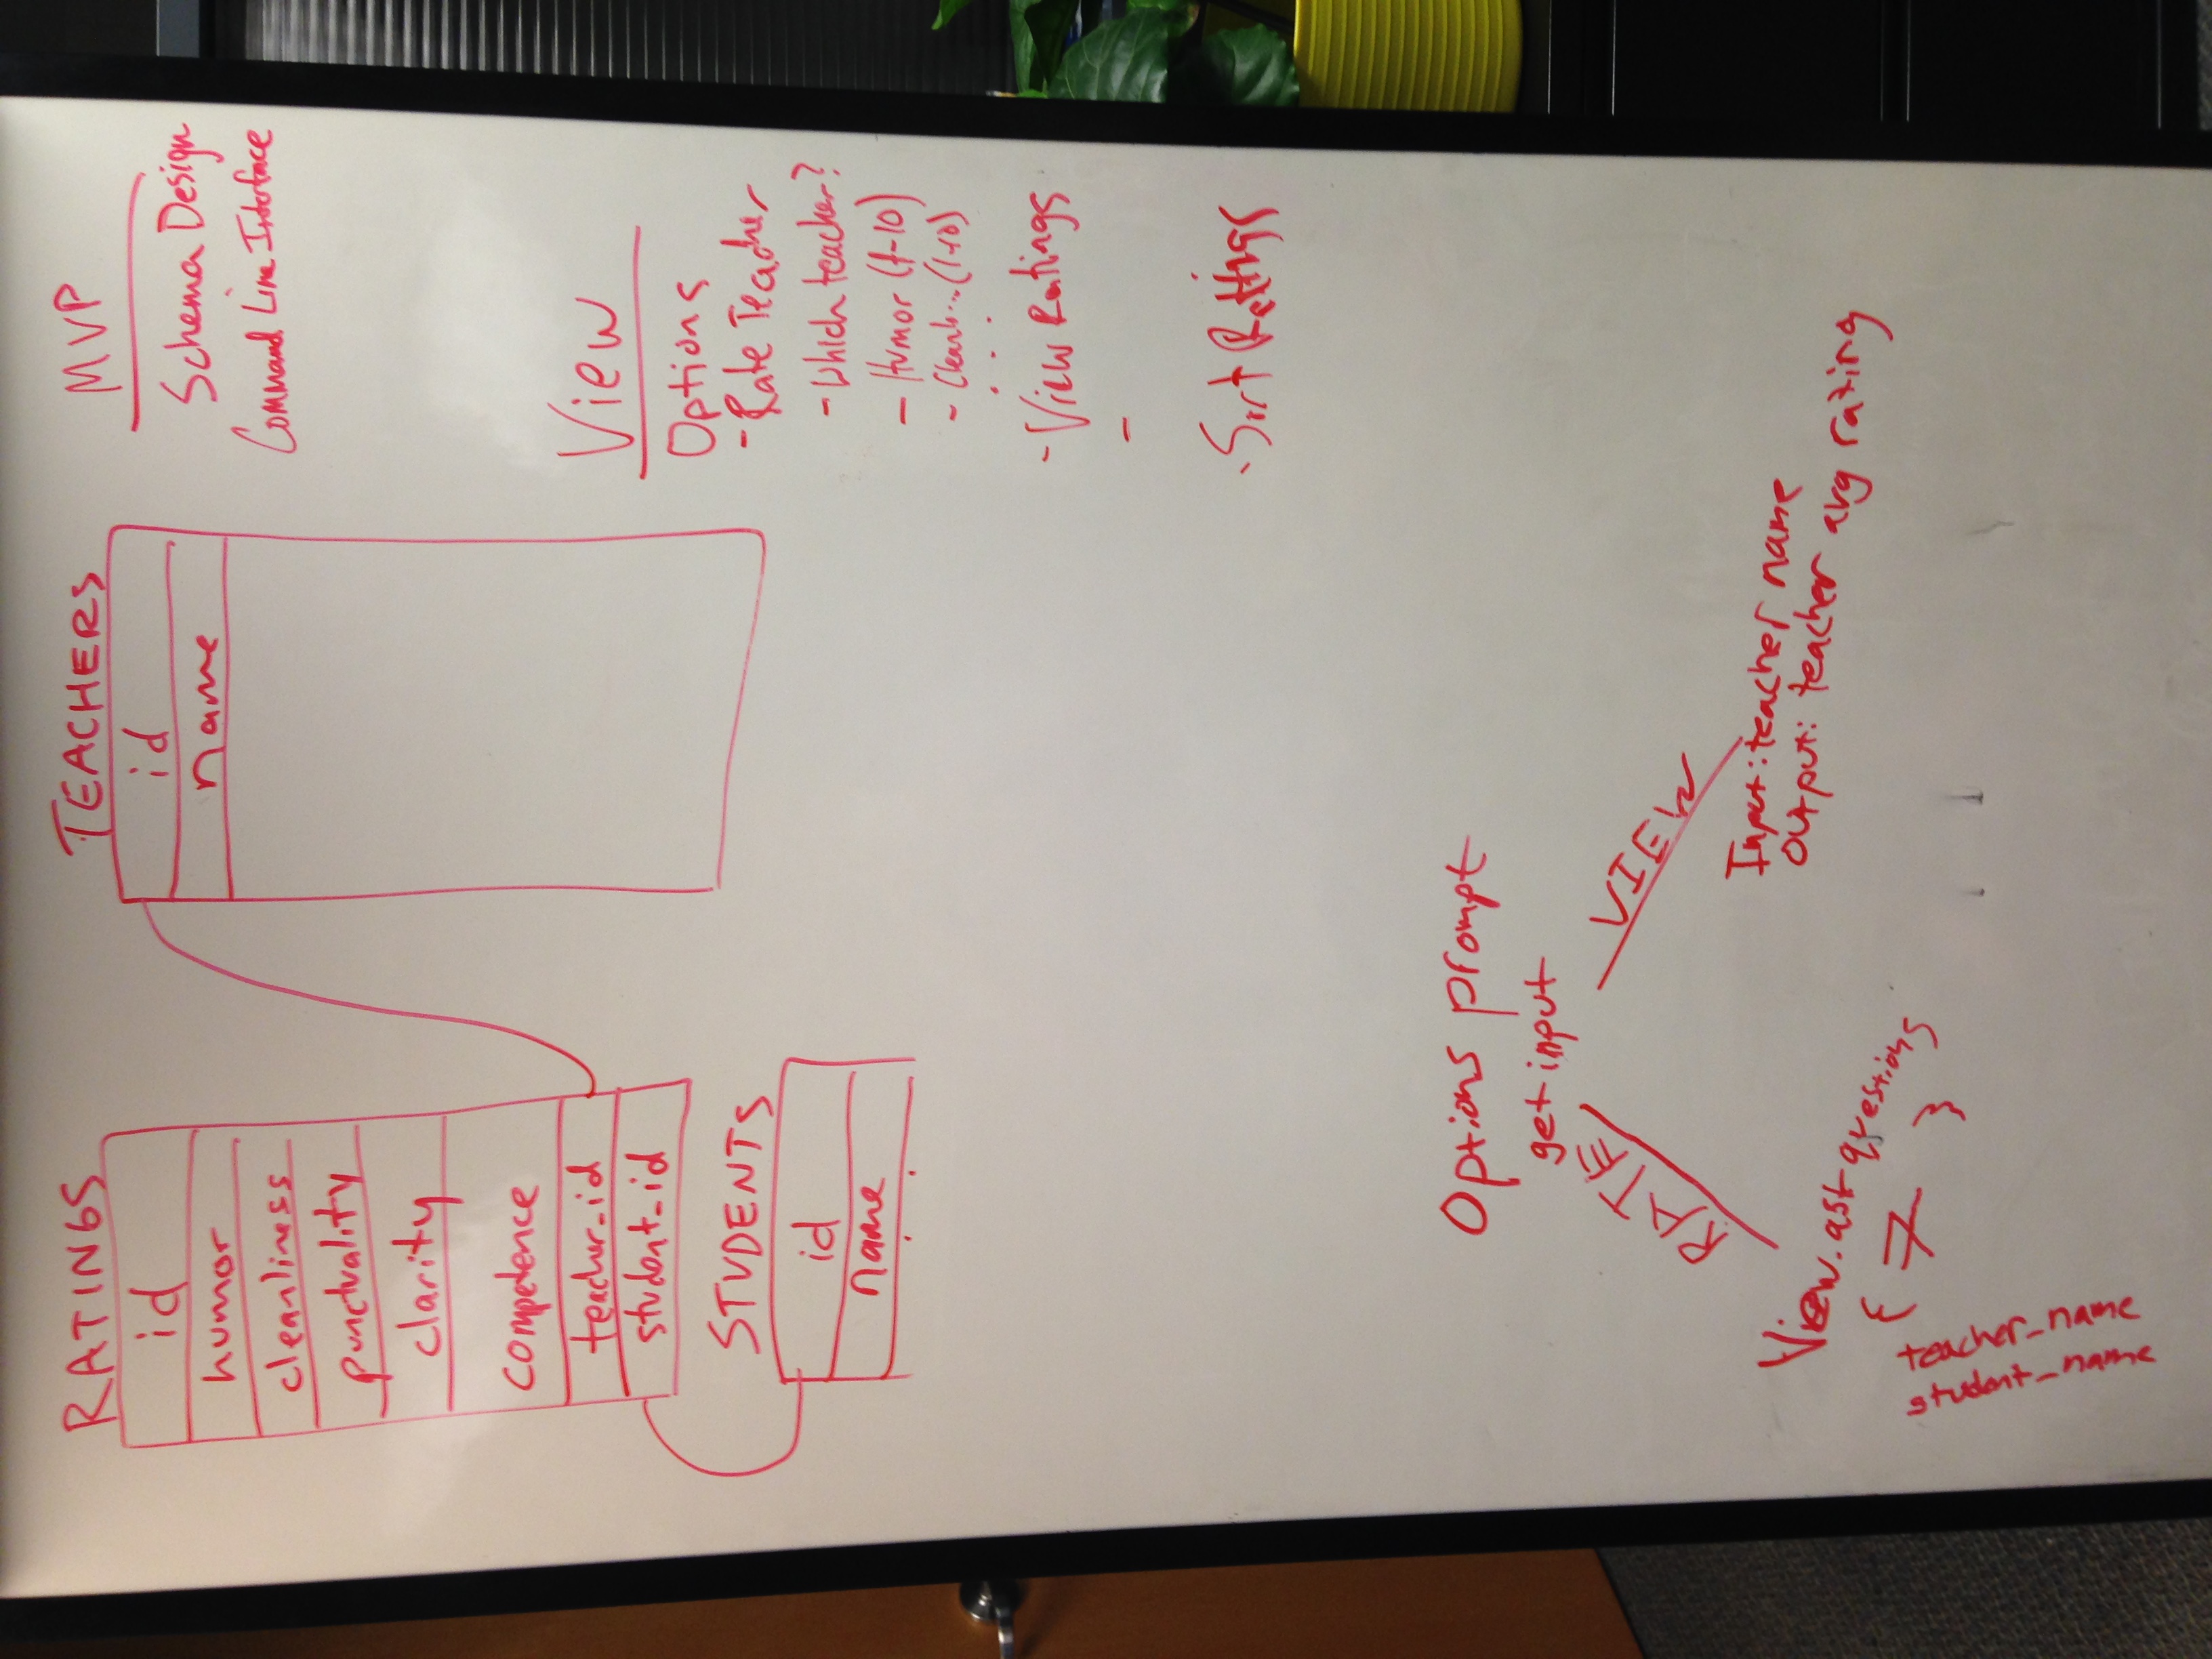 RATINGS
id
humor
cleanliness
punctuality
clarity
competence
teacher_id
student_id
STUDENTS
id
name
TEACHERS
id
name
MVP
Schema Design
Command Line Interface
View
Options
- Rate Teacher
- Which teacher?
- Humor (1-10)
- Cleanli... (1-10)
. . .
- View Ratings
-
. Sort Ratings
Options prompt
get input
RATE
VIEW
Input: teacher name
Output: teacher avg rating
View.ask questions
{ => }
teacher_name
student_name